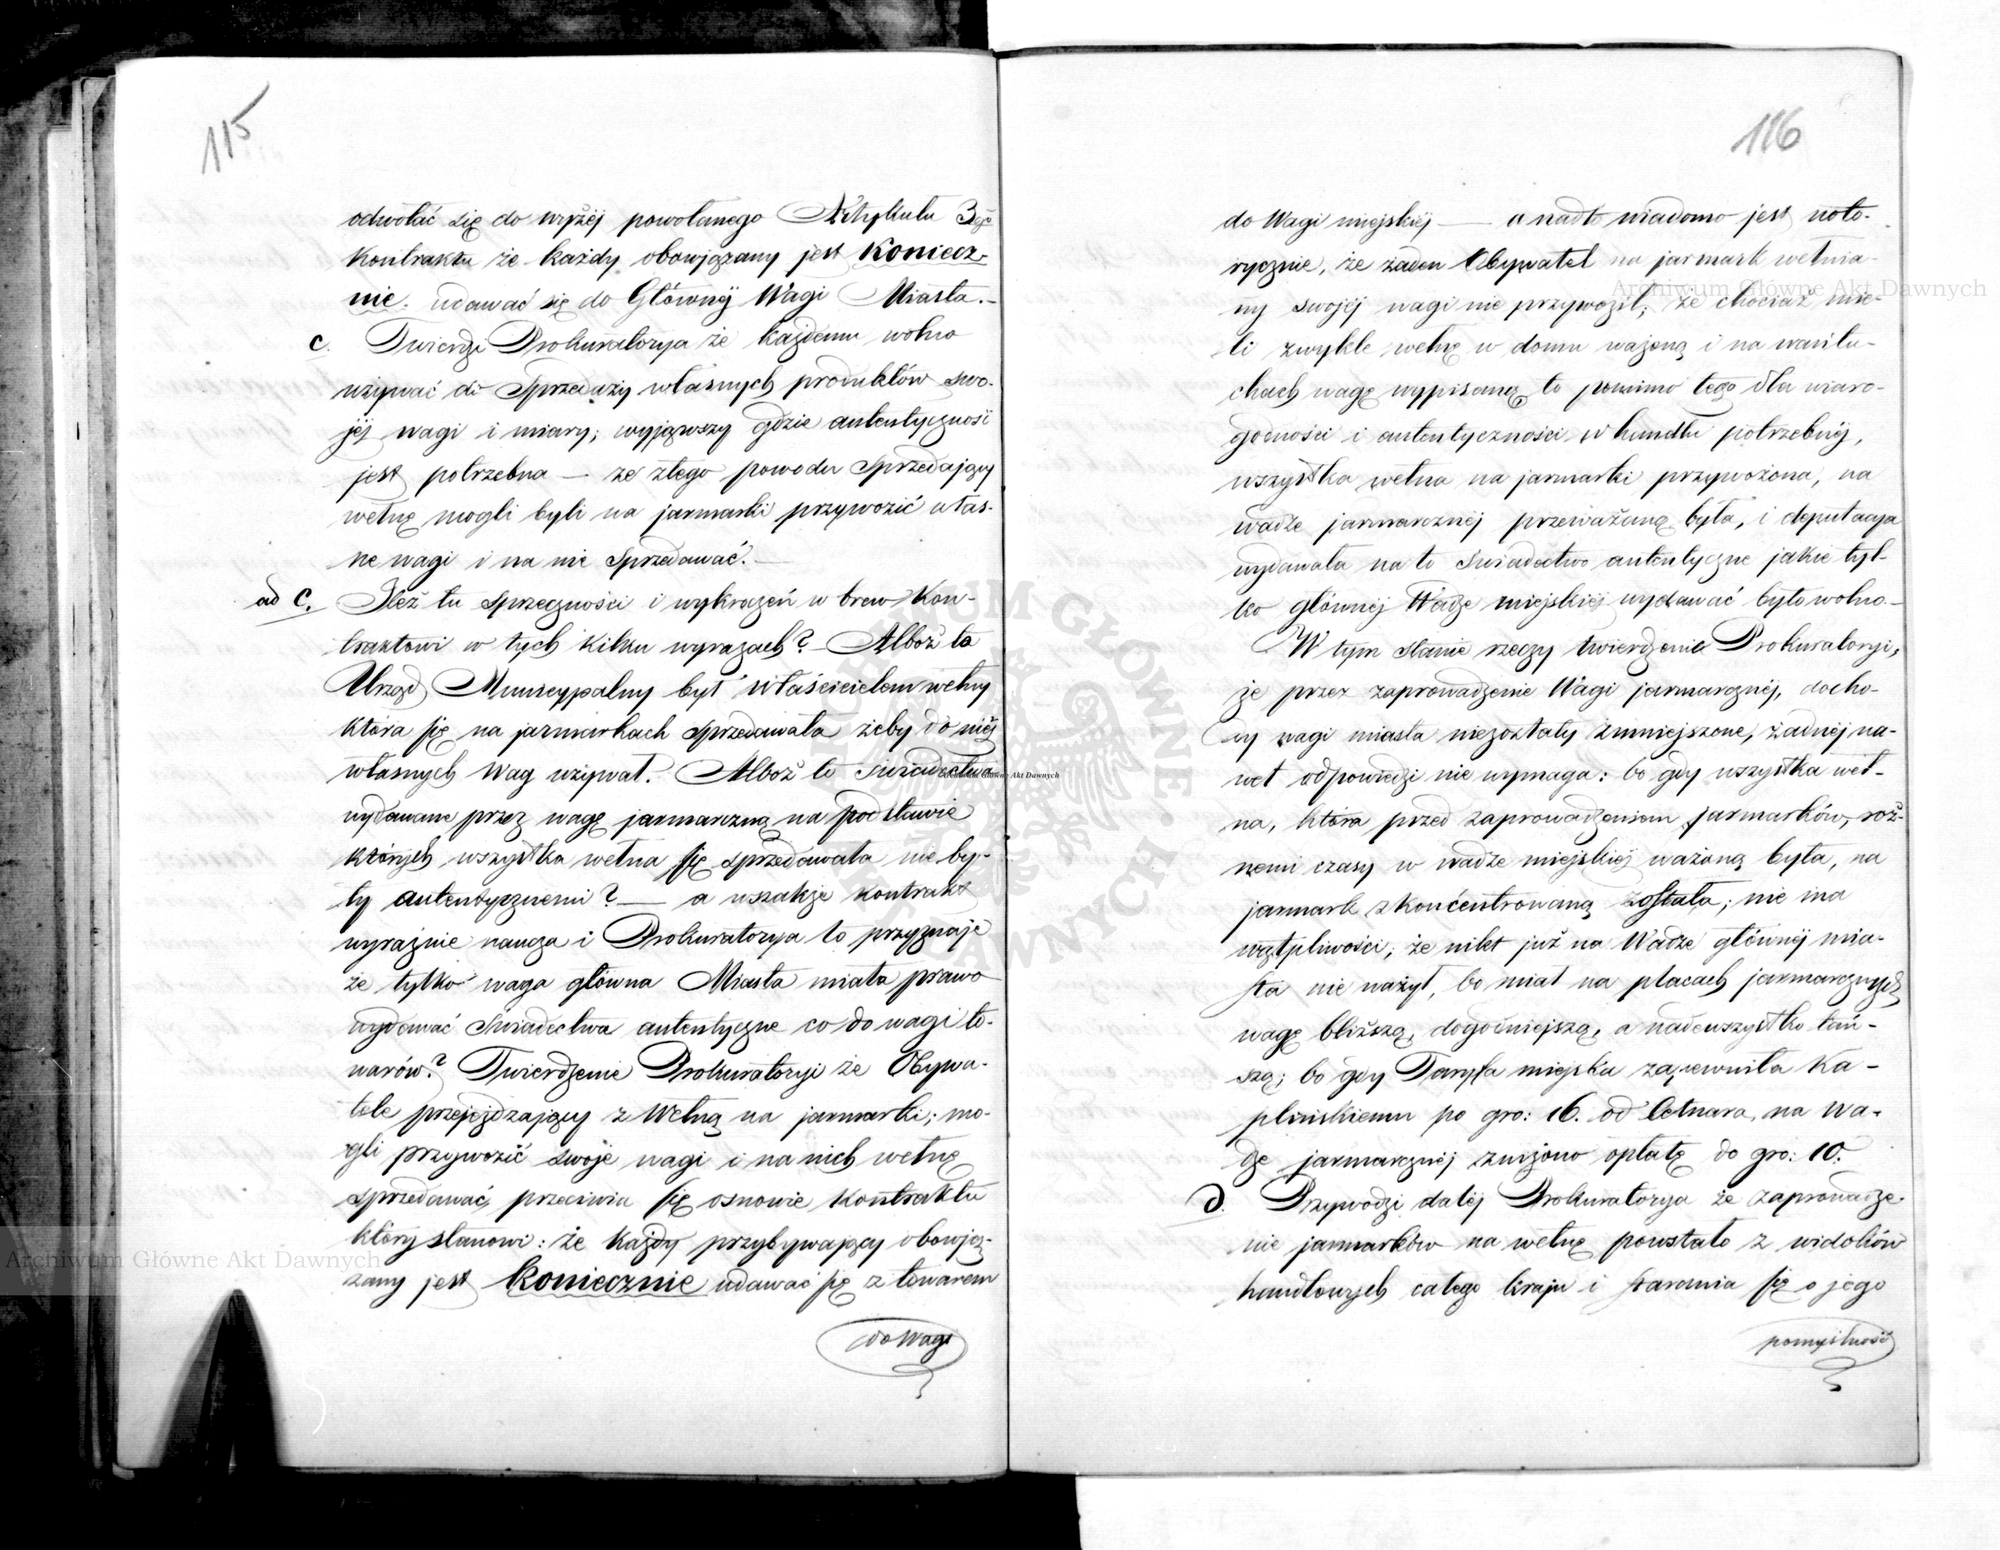 115
odwołać się do wyżéj powołanego Artykułu 3go
Kontraktu że każdy obowjązany jest Koniecz-
nie. udawać się do Głównéj Wagi Miasta.-
c. Twierdzi Prokuratorya że każdemu wolno
używać do Sprzedaży własnych produktów swo-
jéj wagi i miary; wyjąwszy gdzie autentyczność
jest potrzebna — ze złego powodu Sprzedający
wełnę mogli byli na jarmarki przywozić włas-
ne wagi i na nie Sprzedawać.—
ad C. Ileż tu sprzeczności i wykrazeń w brew Kon-
traktowi w tych Kilku wyrazach? — Alboż to
Urząd Municypalny był właścicielem wełny
która się na jarmarkach sprzedawała żeby do niéj
własnych Wag używał. Alboż to świadectwa
wydawane przez wagę jarmarczną na podstawie
których wszystka wełna się sprzedawała nie by-
ły autentycznemi? — a wszakże kontrakt
wyraźnie naucza i Prokuratorya to przyznaje
że tylko waga główna Miasta miała prawo
wydawać świadectwa autentyczne co do wagi to-
warów? Twierdzenie Prokuratoryi że Obywa-
tele przejeżdzający z Wełną na jarmarki; mo-
gli przywozić swoje wagi i na nich wełnę
sprzedawać, przeciwia się osnowie Kontraktu
który stanowi: że Każdy przybywający obowją-
zany jest Koniecznie udawać się z towarem
do Wagi
116
do Wagi miejskiéj — a nadto wiadomo jest noto-
rycznie, że żaden Obywatel na jarmark wełnia-
ny swojéj wagi nie przywoził, że chociaż mie-
li zwykle wełnę w domu ważoną i na wańtu-
chach wagę wypisaną to pomimo tego dla wiaro-
godności i autentyczności w handlu potrzebnéj,
wszystka wełna na jarmarki przywożona, na
wadze jarmarcznéj przeważaną była, i deputacya
wydawała na to świadectwo autentyczne jakie tyl-
ko głównéj Wadze miejskiéj wydawać było wolno.—
W tym stanie rzeczy twierdzenie Prokuratoryi,
że przez zaprowadzenie Wagi jarmarcznéj, docho-
dy wagi miasta niezostały zmniejszone, żadnéj na-
wet odpowiedzi nie wymaga: bo gdy wszystka weł-
na, która przed zaprowadzeniem jarmarków, róż-
nemi czasy w wadze miejskiéj ważoną była, na
jarmark skoncentrowaną została; nie ma
wątpliwości, że nikt już na Wadze głównéj mia-
sta nie ważył, bo miał na placach jarmarcznych
wagę bliższą, dogodniejszą, a nadewszystko tań-
szą; bo gdy Taryfa miejska zapewniła Ka-
plińskiemu po gro: 16. od Cetnara, na Wa-
dze jarmarcznéj zniżono opłatę do gro: 10.
d. Przywodzi daléj Prokuratorya że zaprowadze-
nie jarmarków na wełnę powstało z widoków
handlowych całego kraju i starania się o jego
pomyślność
Archiwum Główne Akt Dawnych
Archiwum Główne Akt Dawnych
ARCHIWUM GŁÓWNE AKT DAWNYCH